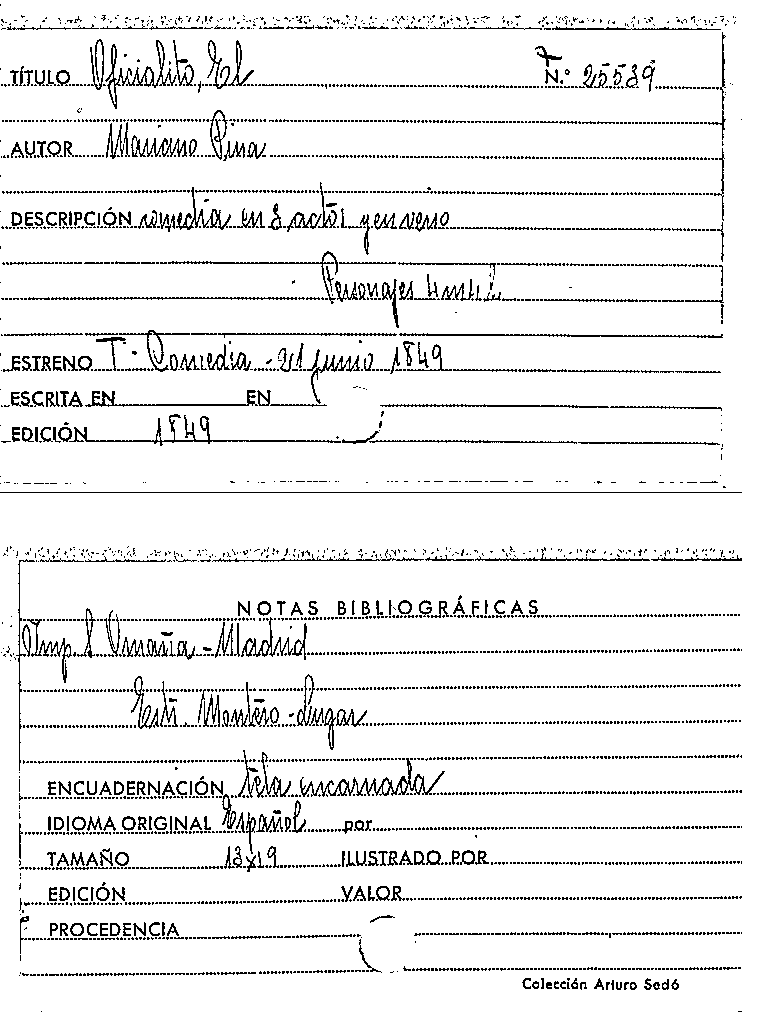 TÍTULO Oficialito, El N.º 25539
AUTOR Mariano Pina
DESCRIPCIÓN comedia en 3 actos y en verso
Personajes
ESTRENO T. Comedia - 21 junio 1849
ESCRITA EN EN
EDICIÓN 1849
NOTAS BIBLIOGRÁFICAS
Imp. S Omaña - Madrid
Montero - Lugar
ENCUADERNACIÓN tela encarnada
IDIOMA ORIGINAL Español por
TAMAÑO 13x19 ILUSTRADO POR
EDICIÓN VALOR
PROCEDENCIA
Colección Arturo Sedó